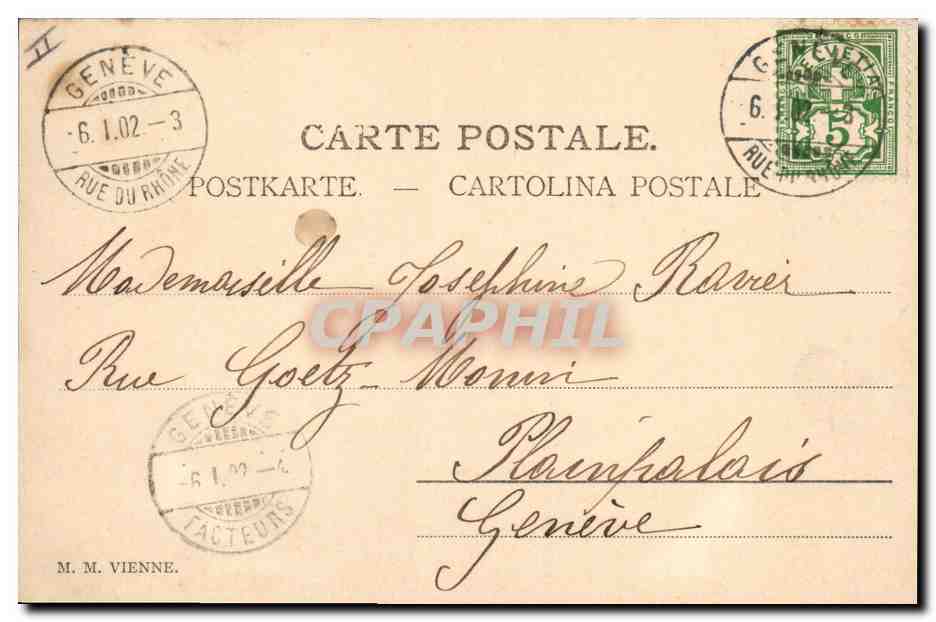 II
GENÈVE
-6.I.02.-3
RUE DU RHÔNE
GENÈVE
6.
RUE DU RHÔNE
HELVETIA
FRANCO
5
CARTE POSTALE.
POSTKARTE. — CARTOLINA POSTALE
Mademoiselle Josephine Ravier
CPAPHIL
Rue Goetz-Monin
Plainpalais
Genève
GENÈVE
-6.I.02.-4
FACTEURS
M. M. VIENNE.